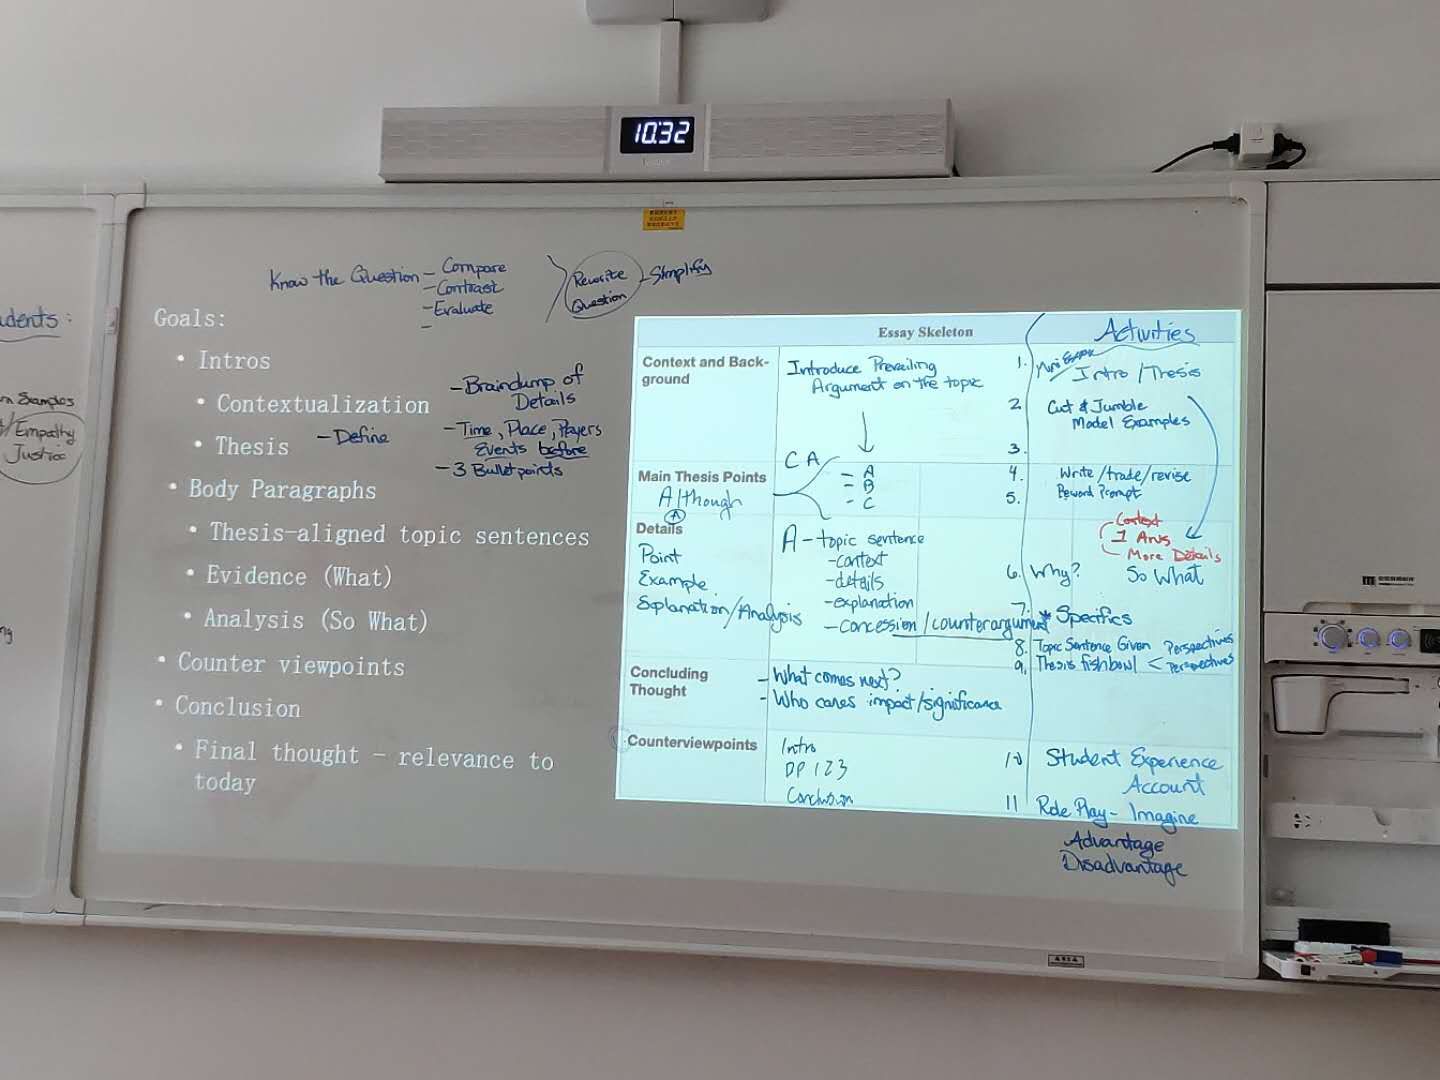 10:32
Know the Question - Compare
- Contrast
- Evaluate
-
Rewrite
Question
- Simplify
udents:
Samples
Empathy
Justice
Goals:
• Intros
• Contextualization
• Thesis
- Define
- Braindump of
Details
- Time, Place, Players
Events before
- 3 Bulletpoints
• Body Paragraphs
• Thesis-aligned topic sentences
• Evidence (What)
• Analysis (So What)
• Counter viewpoints
• Conclusion
• Final thought – relevance to
today
Essay Skeleton
Context and Back-
ground
Introduce Prevailing
Argument on the topic
Main Thesis Points
Although
A
CA
- A
- B
- C
Details
Point
Example
Explanation/Analysis
A - topic sentence
- context
- details
- explanation
- concession/counterargument
Concluding
Thought
- What comes next?
- Who cares impact/significance
Counterviewpoints
Intro
BP 123
Conclusion
Activities
1. Mini Essay
Intro/Thesis
2. Cut & Jumble
Model Examples
3.
4. Write/trade/revise
5. Reword Prompt
Context
1 Arg
More Details
6. Why?
So What
7. * Specifics
8. Topic Sentence Given Perspectives
9. Thesis fishbowl < Perspectives
10 Student Experience
Account
11 Role Play - Imagine
Advantage
Disadvantage